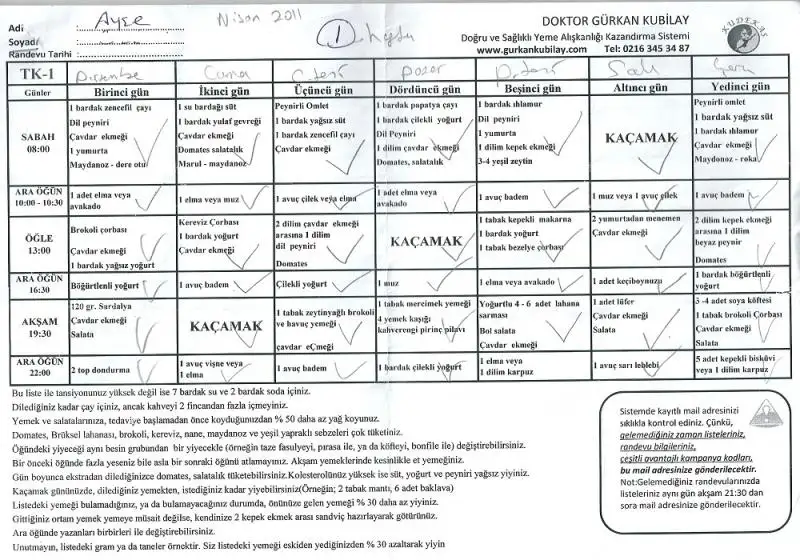 Adi : Ayşe
Nisan 2011
1. hafta
Soyadı :
Randevu Tarihi :
DOKTOR GÜRKAN KUBİLAY
Doğru ve Sağlıklı Yeme Alışkanlığı Kazandırma Sistemi
www.gurkankubilay.com Tel: 0216 345 34 87
KUDEKAS
TK-1 Perşembe Cuma C.tesi Pazar P.tesi Salı Çarş
Günler Birinci gün İkinci gün Üçüncü gün Dördüncü gün Beşinci gün Altıncı gün Yedinci gün
SABAH
08:00
1 bardak zencefil çayı
Dil peyniri
Çavdar ekmeği
1 yumurta
Maydanoz - dere otu
1 su bardağı süt
1 bardak yulaf gevreği
Çavdar ekmeği
Domates salatalık
Marul - maydanoz
Peynirli Omlet
1 bardak yağsız süt
1 bardak zencefil çayı
Çavdar ekmeği
1 bardak papatya çayı
1 bardak çilekli yoğurt
Dil Peyniri
1 dilim çavdar ekmeği
Domates, salatalık
1 bardak ıhlamur
Dil peyniri
1 yumurta
1 dilim kepek ekmeği
3-4 yeşil zeytin
KAÇAMAK
Peynirli omlet
1 bardak yağsız süt
1 bardak ıhlamur
Çavdar ekmeği
Maydonoz - roka
ARA ÖĞÜN
10:00 - 10:30
1 adet elma veya
avakado
1 elma veya muz
1 avuç çilek veya elma
1 adet elma veya
avakado
1 avuç badem
1 muz veya 1 avuç çilek
1 avuç badem
ÖĞLE
13:00
Brokoli çorbası
Çavdar ekmeği
1 bardak yağsız yoğurt
Kereviz Çorbası
1 bardak yoğurt
Çavdar ekmeği
2 dilim çavdar ekmeği
arasına 1 dilim
dil peyniri
Domates
KAÇAMAK
1 tabak kepekli makarna
1 bardak yoğurt
1 tabak bezelye çorbası
2 yumurtadan menemen
Çavdar ekmeği
2 dilim kepek ekmeği
arasına 1 dilim
beyaz peynir
Domates
ARA ÖĞÜN
16:30
Böğürtlenli yoğurt
1 avuç badem
Çilekli yoğurt
1 muz
1 elma veya avakado
1 adet keçiboynuzu
1 bardak böğürtlenli
yoğurt
AKŞAM
19:30
120 gr. Sardalya
Çavdar ekmeği
Salata
KAÇAMAK
1 tabak zeytinyağlı brokoli
ve havuç yemeği
çavdar eÇmeği
1 tabak mercimek yemeği
4 yemek kaşığı
kahverengi pirinç pilavı
Yoğurtlu 4 - 6 adet lahana
sarması
Bol salata
Çavdar ekmeği
1 adet lüfer
Çavdar ekmeği
Salata
3 -4 adet soya köftesi
1 tabak brokoli Çorbası
Çavdar ekmeği
Salata
ARA ÖĞÜN
22:00
2 top dondurma
1 avuç vişne veya
1 elma
1 avuç badem
1 bardak çilekli yoğurt
1 elma veya
1 dilim karpuz
1 avuç sarı leblebi
5 adet kepekli bisküvi
veya 1 dilim karpuz
Bu liste ile tansiyonunuz yüksek değil ise 7 bardak su ve 2 bardak soda içiniz.
Dilediğiniz kadar çay içiniz, ancak kahveyi 2 fincandan fazla içmeyiniz.
Yemek ve salatalarınıza, tedaviye başlamadan önce koyduğunuzdan % 50 daha az yağ koyunuz.
Domates, Brüksel lahanası, brokoli, kereviz, nane, maydanoz ve yeşil yapraklı sebzeleri çok tüketiniz.
Öğündeki yiyeceği aynı besin grubundan bir yiyecekle (örneğin taze fasulyeyi, pırasa ile, ya da köfteyi, bonfile ile) değiştirebilirsiniz.
Bir önceki öğünde fazla yeseniz bile asla bir sonraki öğünü atlamayınız. Akşam yemeklerinde kesinlikle et yemeğiniz.
Gün boyunca ekstradan dilediğinizce domates, salatalık tüketebilirsiniz.Kolesterolünüz yüksek ise süt, yoğurt ve peyniri yağsız yiyiniz.
Kaçamak gününüzde, dilediğiniz yemekten, istediğiniz kadar yiyebilirsiniz(Örneğin; 2 tabak mantı, 6 adet baklava)
Listedeki yemeği bulamadığınız, ya da bulamayacağınız durumda, önünüze gelen yemeği % 30 daha az yiyiniz.
Gittiğiniz ortam yemek yemeye müsait değilse, kendinize 2 kepek ekmek arası sandviç hazırlayarak götürünüz.
Ara öğünde yazanları birbirleri ile değiştirebilirsiniz.
Unutmayın, listedeki gram ya da taneler örnektir. Siz listedeki yemeği eskiden yediğinizden % 30 azaltarak yiyin
Sistemde kayıtlı mail adresinizi
sıklıkla kontrol ediniz. Çünkü,
gelemediğiniz zaman listeleriniz,
randevu bilgileriniz,
çeşitli avantajlı kampanya kodları,
bu mail adresinize gönderilecektir.
Not:Gelemediğiniz randevularınızda
listeleriniz aynı gün akşam 21:30 dan
sora mail adresinize gönderilecektir.